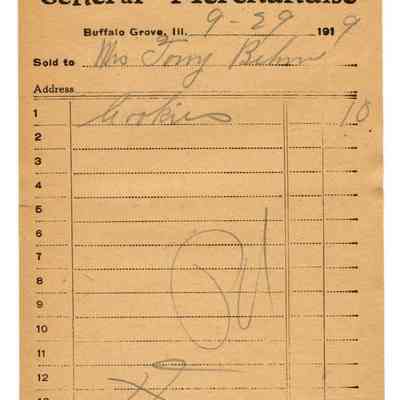 General Merchandise
Buffalo Grove, Ill. 9-29 1919
Sold to Mrs Tony Behm
Address
1 Cookies 10
2
3
4
5
6
7
8
9
10
11
12